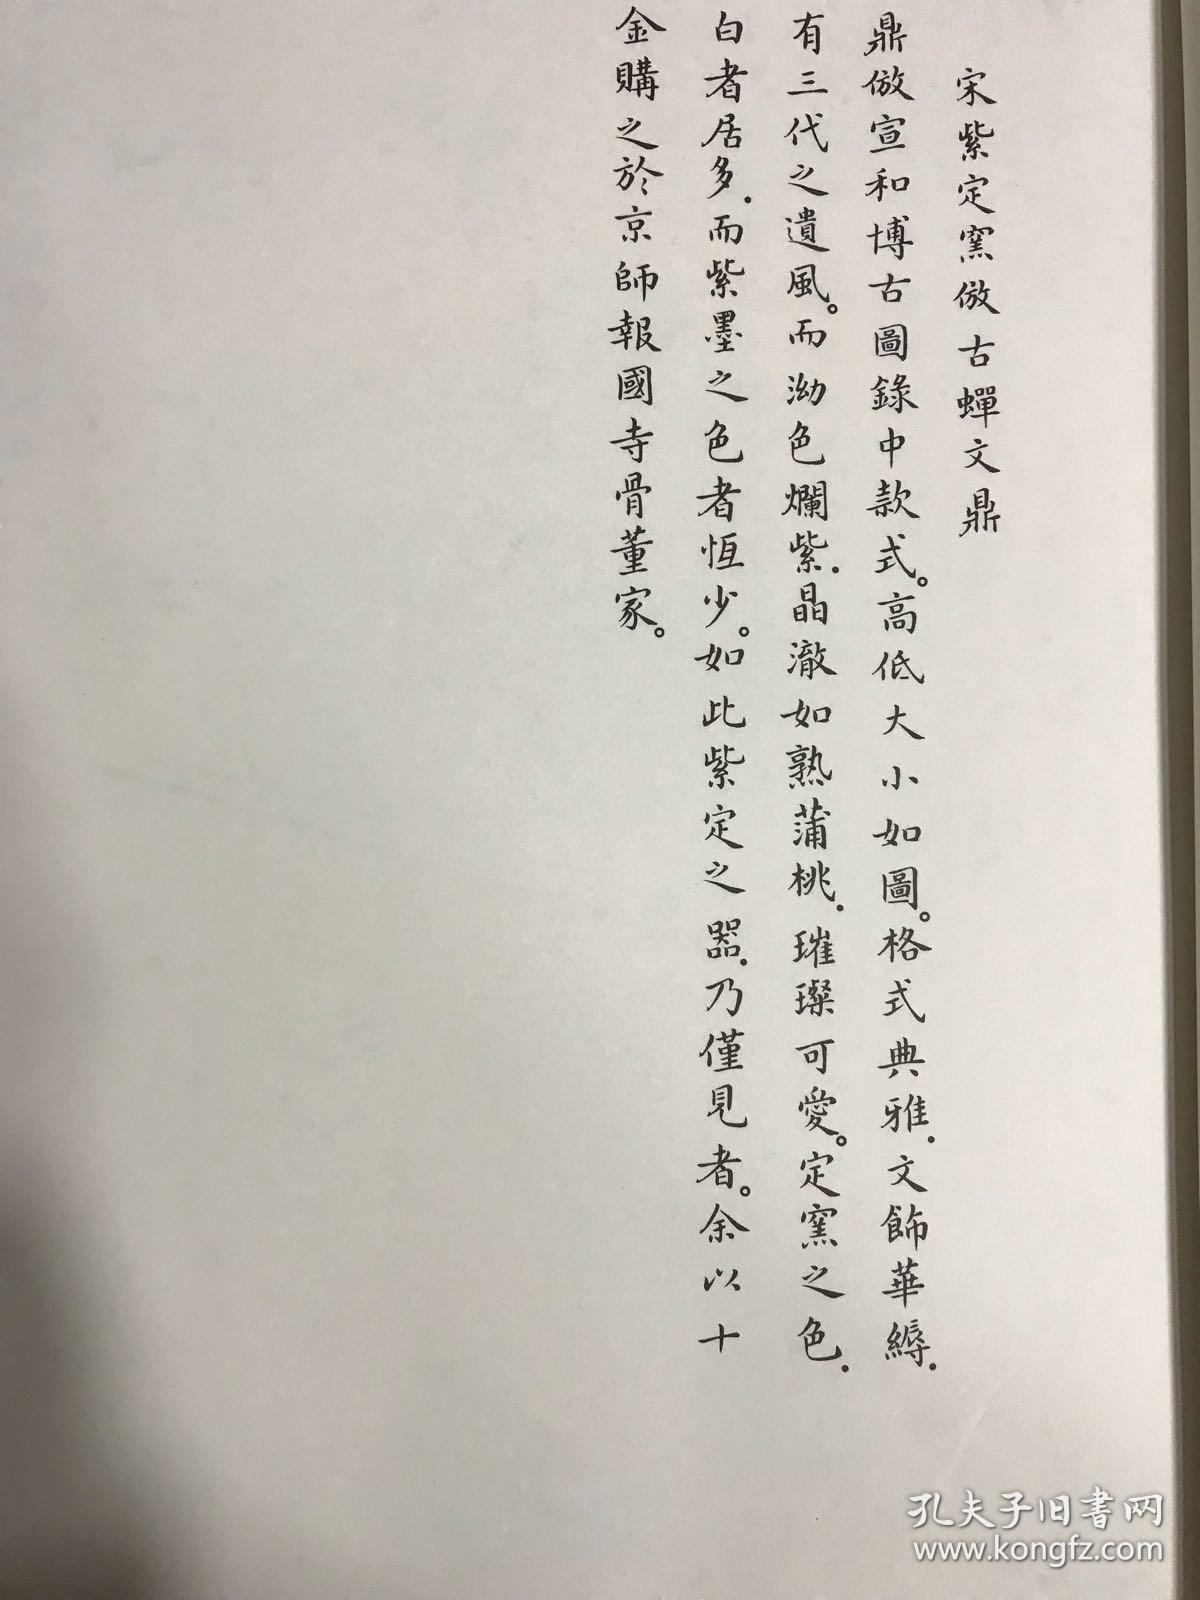 宋紫定窯倣古蟬文鼎
鼎倣宣和博古圖錄中款式。高低大小如圖。格式典雅.文飾華縟.
有三代之遺風。而泑色爛紫.晶澈如熟蒲桃.璀璨可愛。定窯之色.
白者居多.而紫墨之色者恆少。如此紫定之器.乃僅見者。余以十
金購之於京師報國寺骨董家。
孔夫子旧书网
www.kongfz.com